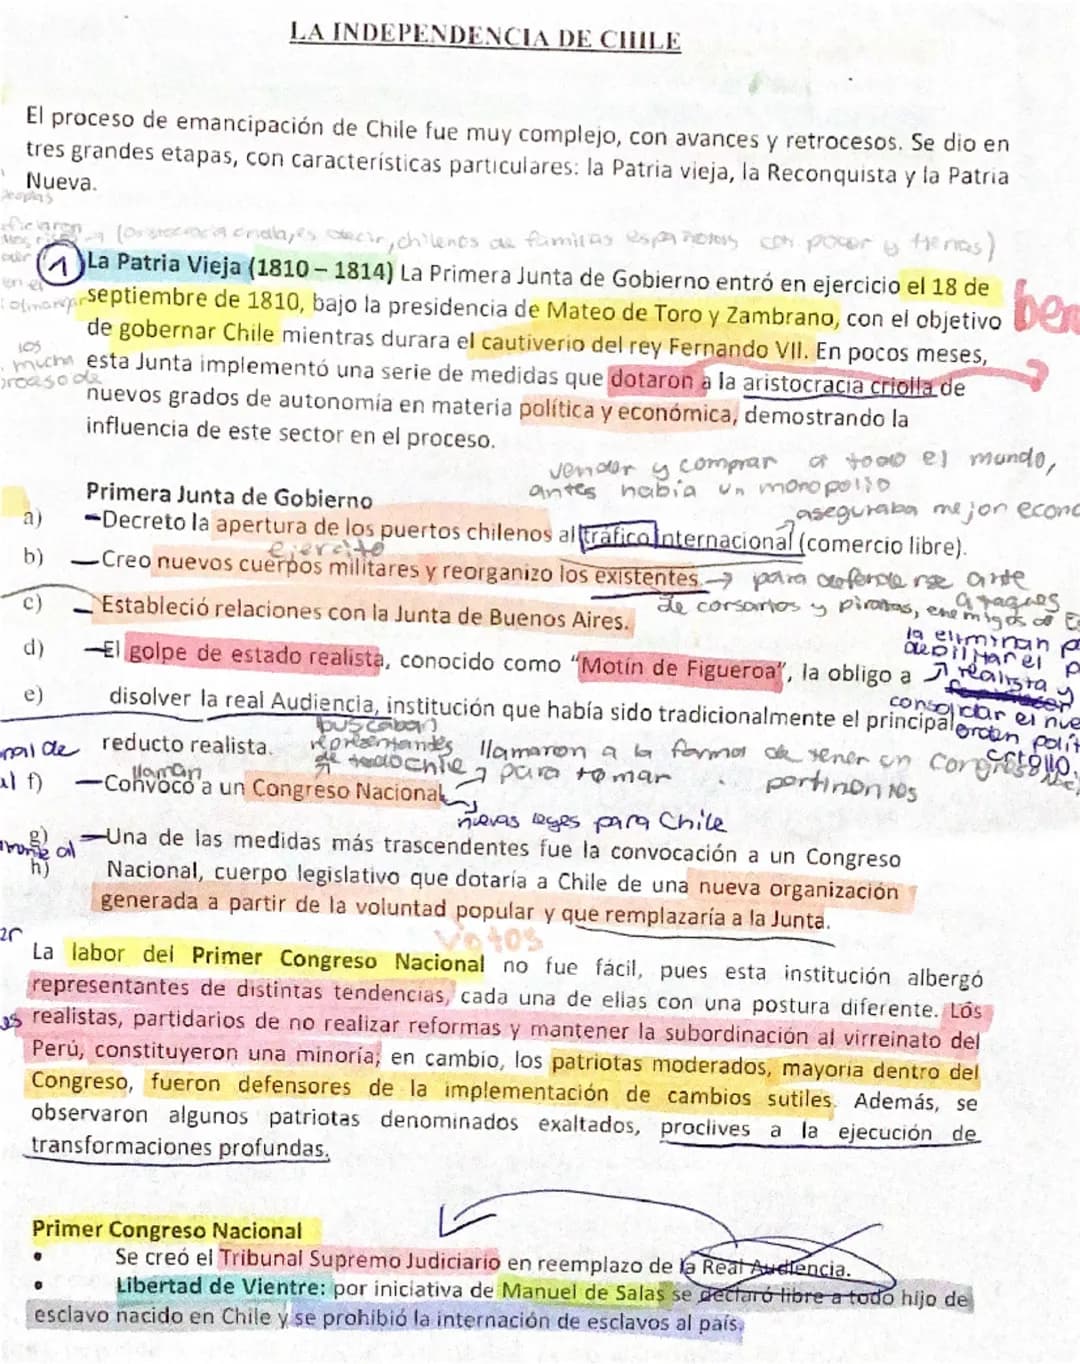 LA INDEPENDENCIA DE CHILE
El proceso de emancipación de Chile fue muy complejo, con avances y retrocesos. Se dio en
tres grandes etapas, con características particulares: la Patria vieja, la Reconquista y la Patria
Nueva.
(aristocracia criolla, es decir, chilenos de familias españolas con poder y tierras)
1 La Patria Vieja (1810 – 1814) La Primera Junta de Gobierno entró en ejercicio el 18 de
septiembre de 1810, bajo la presidencia de Mateo de Toro y Zambrano, con el objetivo
de gobernar Chile mientras durara el cautiverio del rey Fernando VII. En pocos meses,
esta Junta implementó una serie de medidas que dotaron a la aristocracia criolla de
nuevos grados de autonomía en materia política y económica, demostrando la
influencia de este sector en el proceso.
vender y comprar a todo el mundo,
antes había un monopolio
aseguraba mejor
Primera Junta de Gobierno
a) -Decreto la apertura de los puertos chilenos al tráfico internacional (comercio libre).
ejercito
b) -Creo nuevos cuerpos militares y reorganizo los existentes. → para defenderse ante
ataques
de corsarios y piratas, enemigos de
c) - Estableció relaciones con la Junta de Buenos Aires.
la eliminan
debilitar el
d) -El golpe de estado realista, conocido como "Motín de Figueroa", la obligo a
realista y
consolidar el
e) disolver la real Audiencia, institución que había sido tradicionalmente el principal
orden
criollo.
buscaban
reducto realista.
representantes
de todo Chile
llamaron a la forma de tener un congreso
para tomar
llaman
f) -Convocó a un Congreso Nacional
nuevas leyes para Chile
g) -Una de las medidas más trascendentes fue la convocación a un Congreso
h) Nacional, cuerpo legislativo que dotaría a Chile de una nueva organización
generada a partir de la voluntad popular y que remplazaría a la Junta.
votos
La labor del Primer Congreso Nacional no fue fácil, pues esta institución albergó
representantes de distintas tendencias, cada una de ellas con una postura diferente. Los
realistas, partidarios de no realizar reformas y mantener la subordinación al virreinato del
Perú, constituyeron una minoría; en cambio, los patriotas moderados, mayoría dentro del
Congreso, fueron defensores de la implementación de cambios sutiles. Además, se
observaron algunos patriotas denominados exaltados, proclives a la ejecución de
transformaciones profundas.
Primer Congreso Nacional
• Se creó el Tribunal Supremo Judiciario en reemplazo de la Real Audiencia.
• Libertad de Vientre: por iniciativa de Manuel de Salas se declaró libre a todo hijo de
esclavo nacido en Chile y se prohibió la internación de esclavos al país.